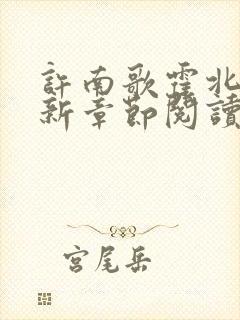 許南歌霍北
新章節閱讀
宮尾岳